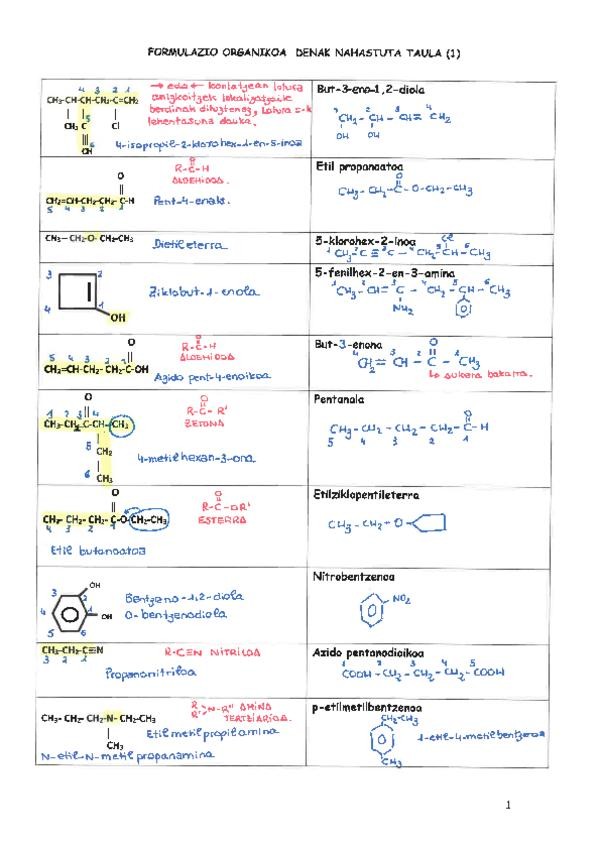 FORMULAZIO ORGANIKOA DENAK NAHASTUTA TAULA (1)
4 3 2 1
CH₃-CH-CH-CH₂-C=CH₂
5
CH₃ C Cl
CH
lehentasuna dauka.
4-isopropil-2-klorohex-1-en-5-inoa
But-3-eno-1,2-diola
1 2 3 4
CH₂ - CH - CH = CH₂
OH OH
O
CH₂=CH-CH₂-CH₂-C-H
5 4 3 2 1
O
R-C-H
ALDEHIDOA.
Pent-4-enala.
Etil propanoatoa
O
CH₃ - CH₂ - C - O - CH₂ - CH₃
CH₃-CH₂-O-CH₂-CH₃
Dietileterra
5-klorohex-2-inoa
1 2 3 4 5 6
CH₃ - C ≡ C - CH₂ - CH - CH₃
Cl
3 2
4 1
OH
Ziklobut-1-enola
5-fenilhex-2-en-3-amina
1 2 3 4 5 6
CH₃ - CH = C - CH₂ - CH - CH₃
NH₂
O
5 4 3 2 1
CH₂=CH-CH₂-CH₂-C-OH
O
R-C-H
ALDEHIDOA
Azido pent-4-enoikoa
But-3-enona
O
4 3 2 1
CH₂ = CH - C - CH₃
↳ aukera bakarra.
O
1 2 3 4
CH₃-CH₂-C-CH-CH₃
5 CH₂
6 CH₃
O
R-C-R'
ZETONA
4-metilhexan-3-ona
Pentanala
O
CH₃ - CH₂ - CH₂ - CH₂ - C - H
5 4 3 2 1
O
CH₃-CH₂-CH₂-C-O-CH₂-CH₃
4 3 2 1
O
R-C-OR'
ESTERRA
Etil butanoatoa
Etilziklopentileterra
CH₃ - CH₂ - O
OH
3 2
4 1 OH
5 6
Bentzeno-1,2-diola
O-bentzenodiola
Nitrobentzenoa
NO₂
CH₃-CH₂-C≡N
3 2 1
R-C≡N NITRILOA
Propanonitriloa
Azido pentanodioikoa
1 2 3 4 5
COOH - CH₂ - CH₂ - CH₂ - COOH
CH₃-CH₂-CH₂-N-CH₂-CH₃
CH₃
R
R' N-R'' AMINA
TERTZIARIOA.
Etilmetilpropilamina
N-etil-N-metilpropanamina
p-etilmetilbentzenoa
CH₂-CH₃
CH₃
1-etil-4-metilbentzenoa
1